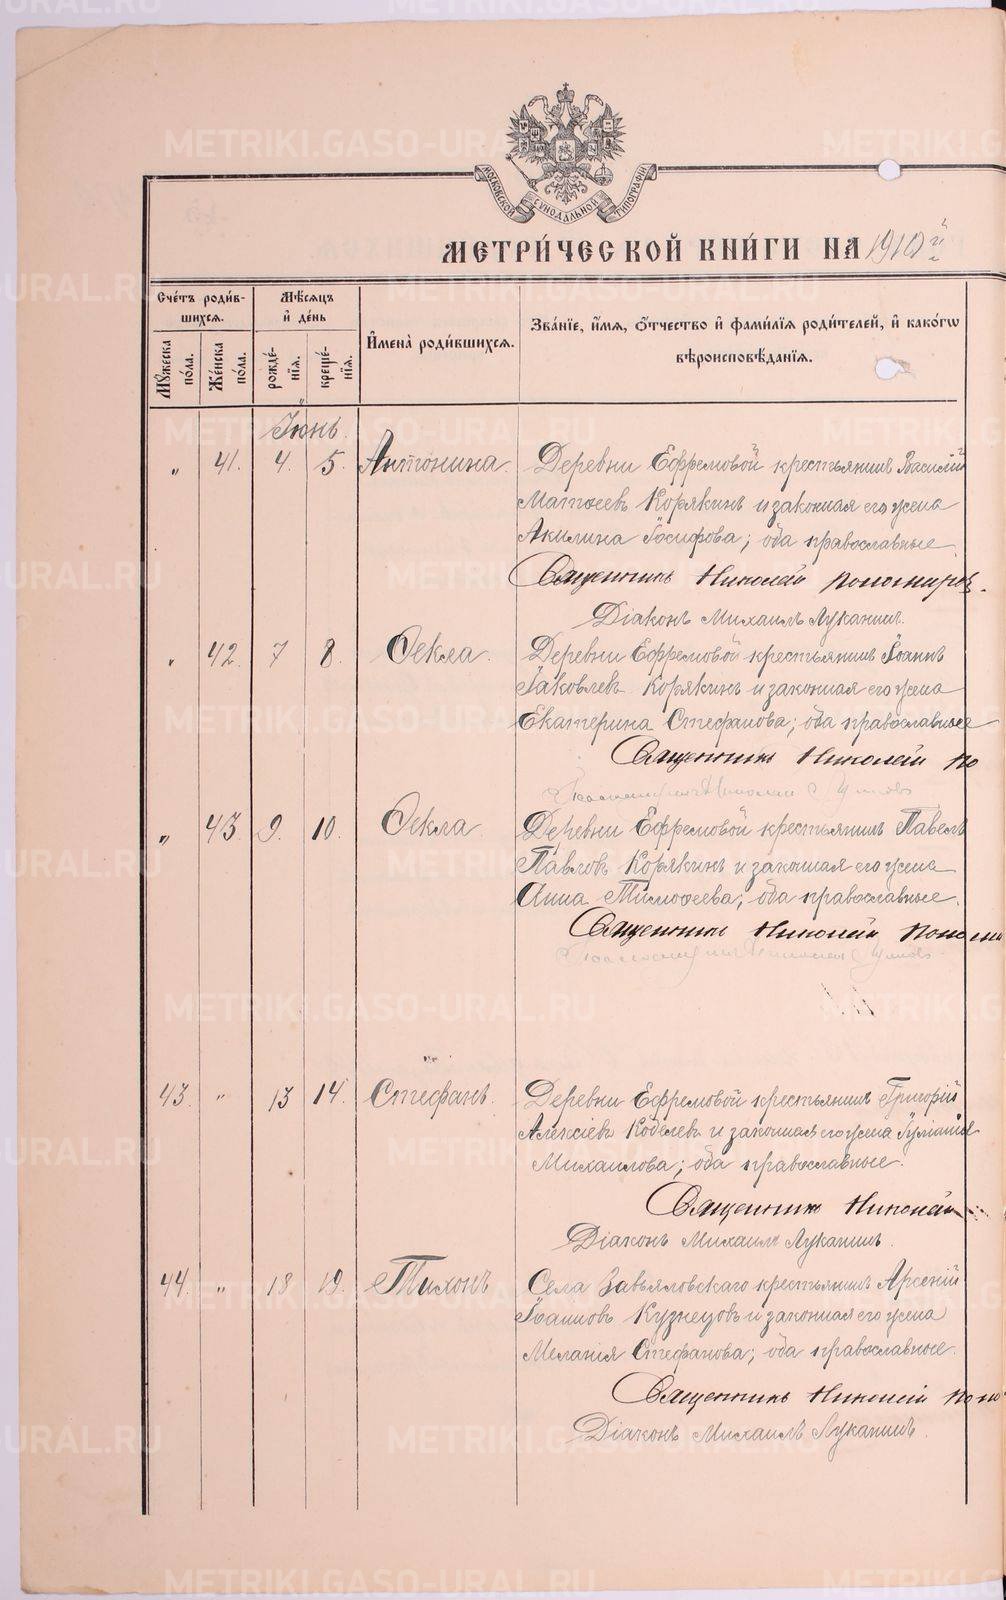 МОСКОВСКОЙ СѴНОДАЛЬНОЙ ТИПОГРАФІИ
МЕТРИ́ЧЕСКОЙ КНИ́ГИ НА 1910й
Сче́тъ роди́в-
шихся.
Мѣ́сяцъ
и҆ де́нь
И҆мена̀ роди́вшихся.
Зва́нїе, и҆́мя, ѻ҆́тчество и҆ фами́лїя роди́телей, и҆ како́гѡ
вѣроисповѣ́данїя.
Мꙋ́жеска по́ла.
Же́нска по́ла.
рожде́-
нїя.
креще́-
нїя.
Іюнь.
" 41. 4. 5. Антонина. Деревни Ефремовой крестьянинъ Василій
Матѳеевъ Корякинъ и законная его жена
Акилина Іосифова; оба православные.
Священникъ Николай Пономарев.
Діаконъ Михаилъ Луканинъ.
" 42. 7 8. Ѳекла. Деревни Ефремовой крестьянинъ Іоаннъ
Іаковлевъ Корякинъ и законная его жена
Екатерина Стефанова; оба православные
Священникъ Николай По
" 43. 9. 10. Ѳекла. Деревни Ефремовой крестьянинъ Павелъ
Павловъ Корякинъ и законная его жена
Анна Тимоѳеева; оба православные.
Священникъ Николай Поном
43. " 13 14. Стефанъ. Деревни Ефремовой крестьянинъ Григорій
Алексіевъ Кобелевъ и законная его жена Іуліанія
Михаилова; оба православные.
Священникъ Николай
Діаконъ Михаилъ Луканинъ.
44. " 18 19. Тихонъ Села Завьяловскаго крестьянинъ Арсеній
Іоанновъ Кузнецовъ и законная его жена
Меланія Стефанова; оба православные.
Священникъ Николай Поно
Діаконъ Михаилъ Луканинъ.
METRIKI.GASO-URAL.RU